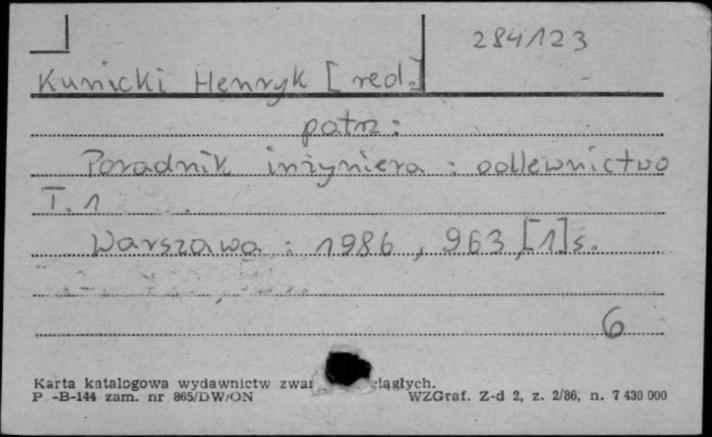 284123
Kunicki Henryk [red.]
patrz:
Poradnik inżyniera : odlewnictwo
T. 1
Warszawa : 1986, 963, [1] s.
6
Karta katalogowa wydawnictw zwar ciągłych.
P -B-144 zam. nr 865/DW/ON WZGraf. Z-d 2, z. 2/86, n. 7 430 000